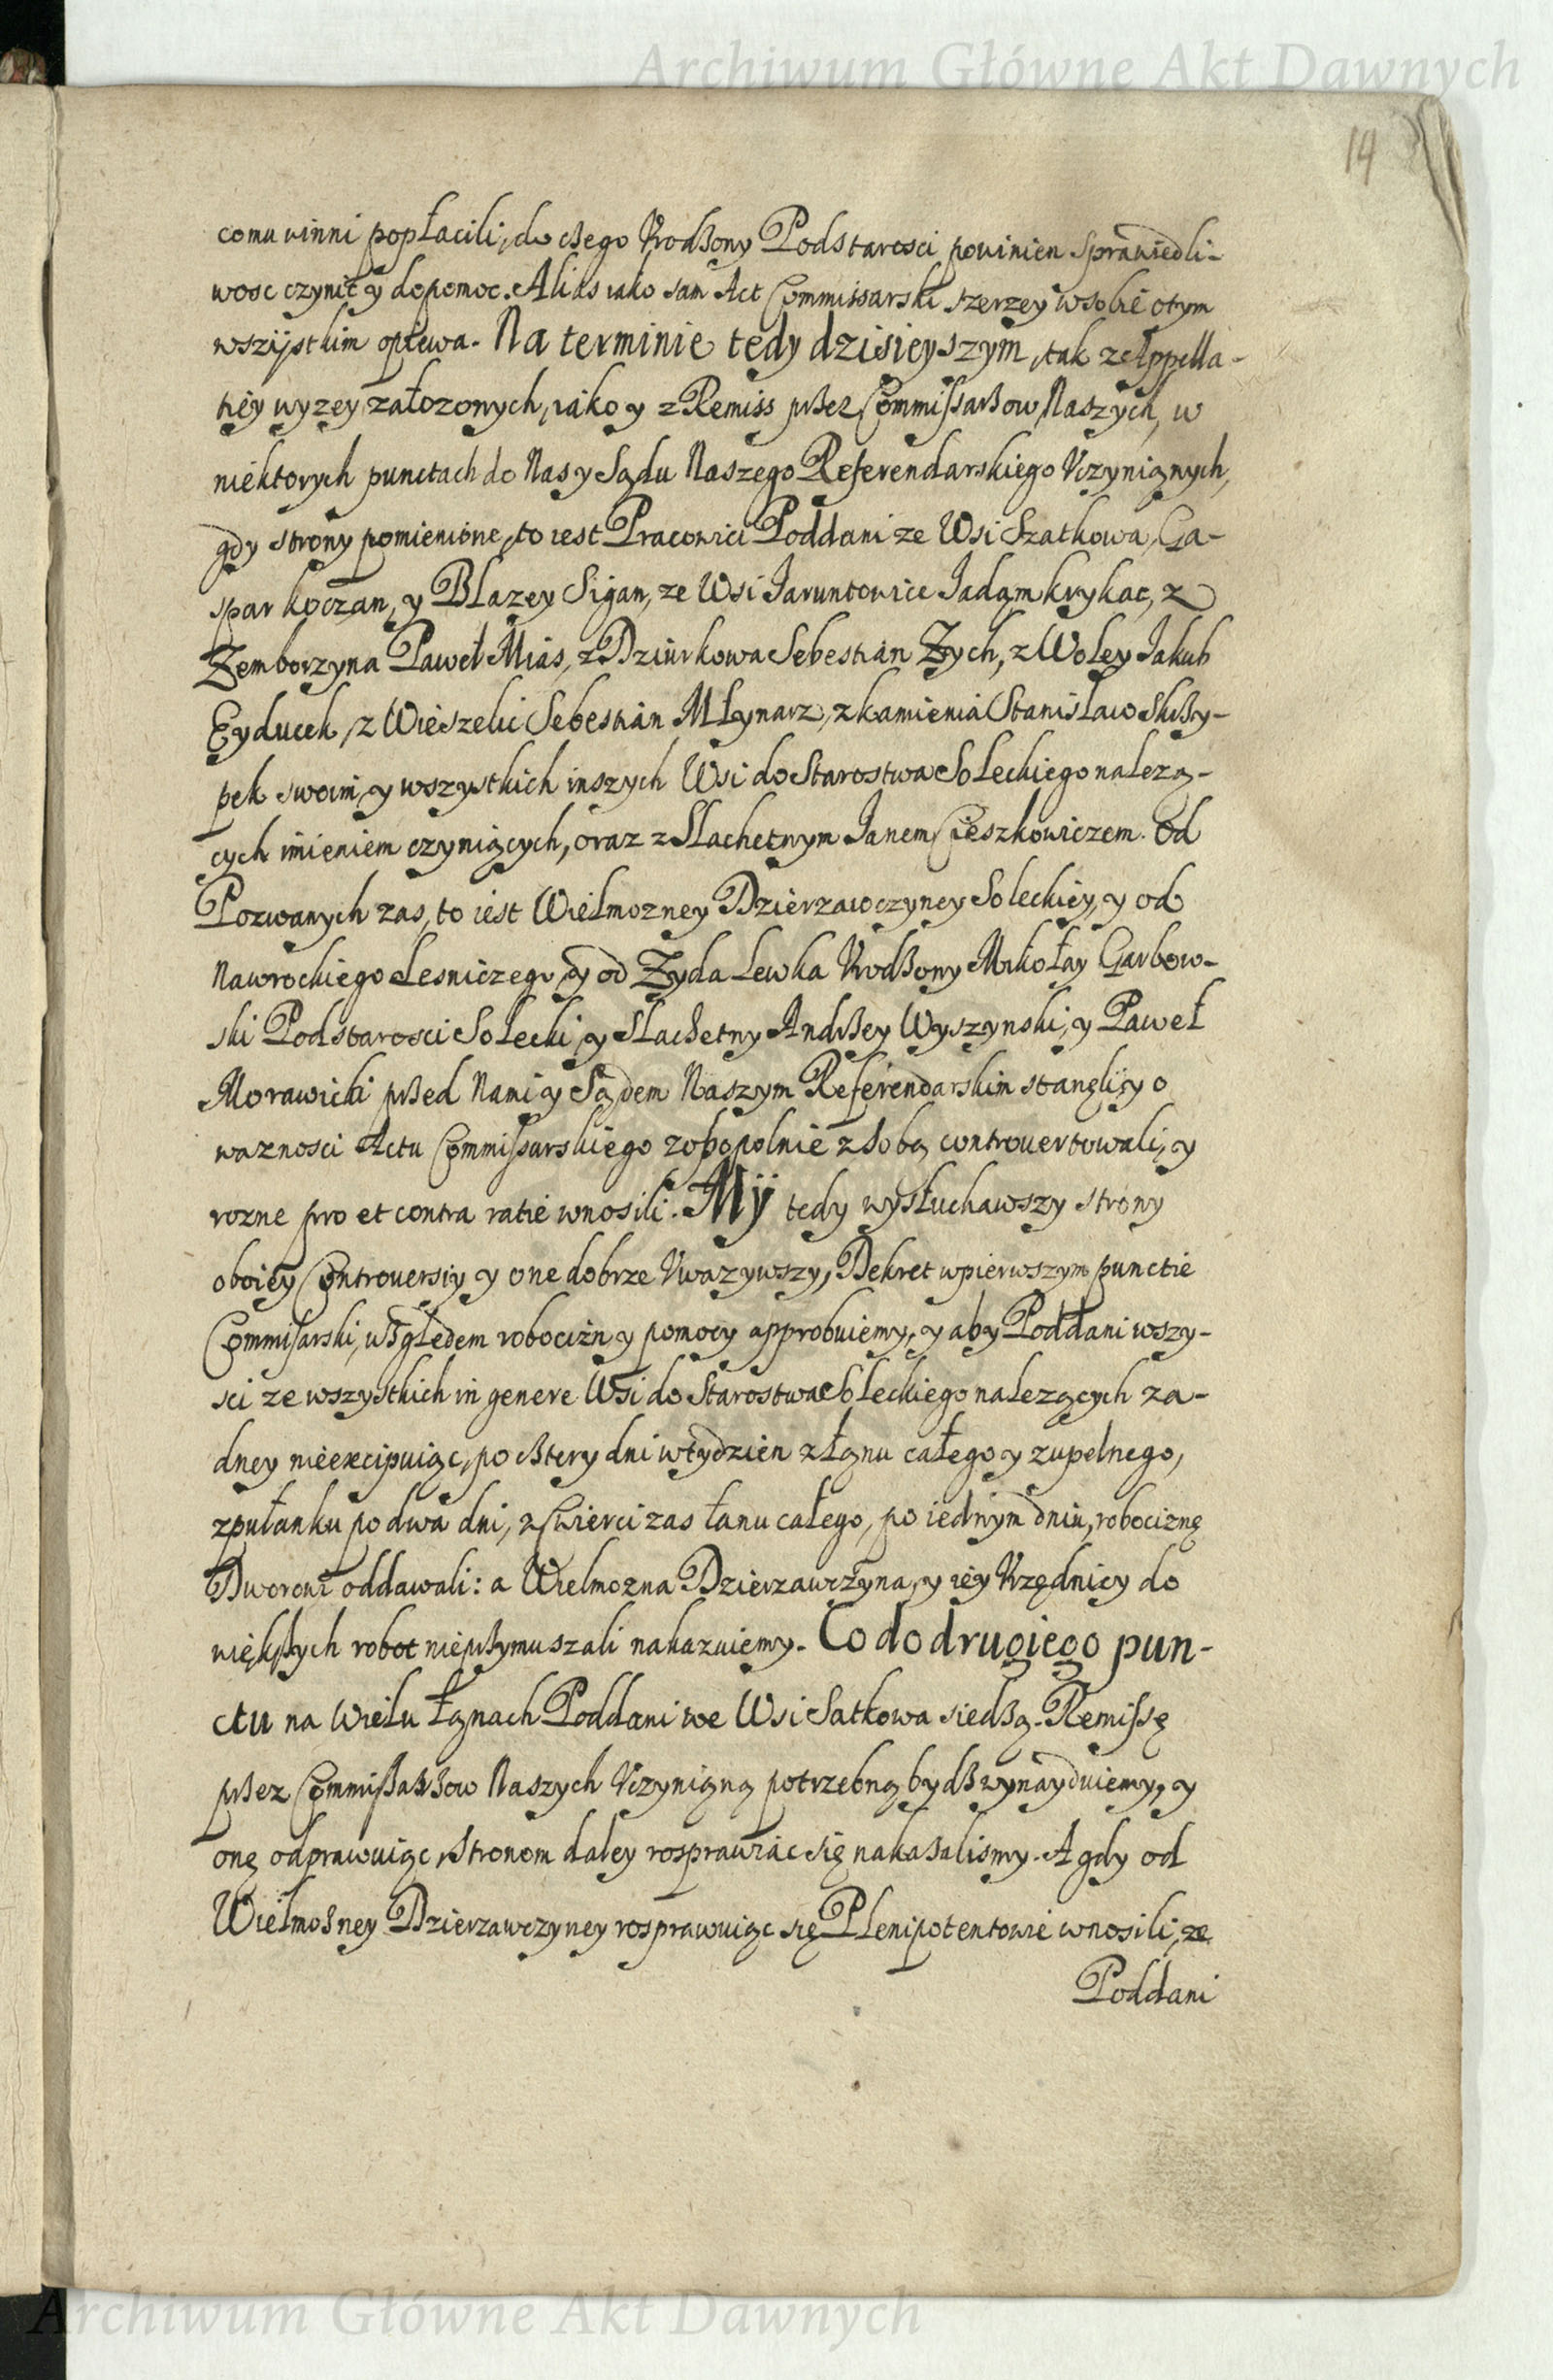 Archiwum Główne Akt Dawnych
14
comu vinni popłacili, do cżego Vrodzony Podstarosci powinien sprawiedli-
wosc czynić y dopomoc. Alias iako sam Act Commissarski szerzey w sobie otym
wszystkim opiewa. Na terminie tedy dzisieyszym, tak z Appella-
tiey wyzey załozonych, iako y z Remiss przez Commissarzow Naszych, w
niektorych punctach do Nas y Sądu Naszego Referendarskiego Vczynionych,
gdy strony pomienione, to iest Pracowici Poddani ze Wsi Szatkowa, Ga-
spar koczan, y Blazey Sigan, ze Wsi Jaruntowice Jadam krykac, z
Zemborzyna Paweł Mias, z Dziurkowa Sebestian Zych, z Woley Jakub
Eyducek, z Wieszelic Sebestian Młynarz, z kamienia Stanislaw Skrzy-
pek swoim y wszystkich inszych Wsi do Starostwa Soleckiego nalezą-
cych imieniem czyniących, oraz z Slachetnym Janem Cieszkowiczem. Od
Pozwanych zas, to iest Wielmozney Dzierzawczyney Soleckiey, y od
Nawrockiego Lesniczego, y od Zyda Lewka Vrodzony Mikołay Garbow-
ski Podstarosci Solecki, y Slachetny Andrzey Wyszynski, y Paweł
Morawicki przed Nami y Sądem Naszym Referendarskim stanęli, y o
waznosci Actu Commissarskiego zobopolnie z sobą controvertowali, y
rozne pro et contra ratie wnosili. My tedy wysłuchawszy strony
oboiey Controversiy y one dobrze Vwazywszy, Dekret wpierwszym punctie
Commisarski, względem robocizn y pomocy approbuiemy, y aby Poddani wszy-
sci ze wszystkich in genere Wsi do Starostwa Soleckiego nalezących za-
dney nieexcipuiąc, po cztery dni w tydzien z łanu całego y zupelnego,
z pułanku po dwa dni, z Cwierci zas łanu całego, po iednym dniu, robociznę
Dworowi oddawali: a Wielmozna Dzierzawczyna, y iey Vrzędnicy do
większych robot nieprzymuszali nakazuiemy. Co do drugiego pun-
ctu na wielu łanach Poddani we Wsi Satkowa siedzą. Remissę
przez Commissarzow Naszych Vczynioną potrzebną bydz wynayduiemy, y
onę odprawuiąc, stronom daley rosprawiac się nakazalismy. A gdy od
Wielmozney Dzierzawczyney rosprawuiąc się Plenipotentowie wnosili, ze
Poddani
Archiwum Główne Akt Dawnych